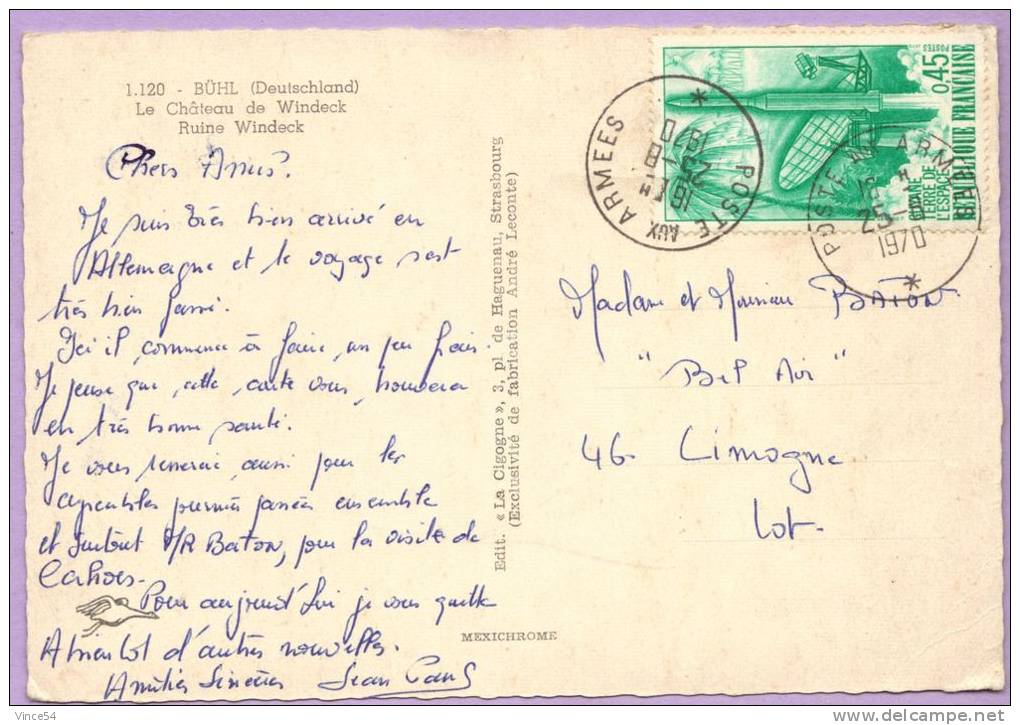 1.120 - BÜHL (Deutschland)
Le Château de Windeck
Ruine Windeck
Chers Amis.
Je suis très bien arrivé en
Allemagne et le voyage s'est
très bien passé.
Ici il commence à faire un peu frais.
Je pense que cette carte vous trouvera
en très bonne santé.
Je vous remercie aussi pour les
agréables passées ensemble
et surtout Mr Baton, pour la visite de
Cahors.
Pour aujourd'hui je vous quitte
A bientôt d'autres nouvelles.
Amitiés Sincères Jean
Edit. « La Cigogne », 3, pl. de Haguenau, Strasbourg
(Exclusivité de fabrication André Leconte)
MEXICHROME
POSTE AUX ARMEES
16 H
25-8
1970
*
0,45
POSTES
REPUBLIQUE FRANÇAISE
GUYANE
TERRE DE
L'ESPACE
POSTE AUX ARM
16 H
25-8
1970
*
Madame et Monsieur BATON.
"Bel Air"
46. Limogne
Lot.
Vince54
http://www.delcampe.net